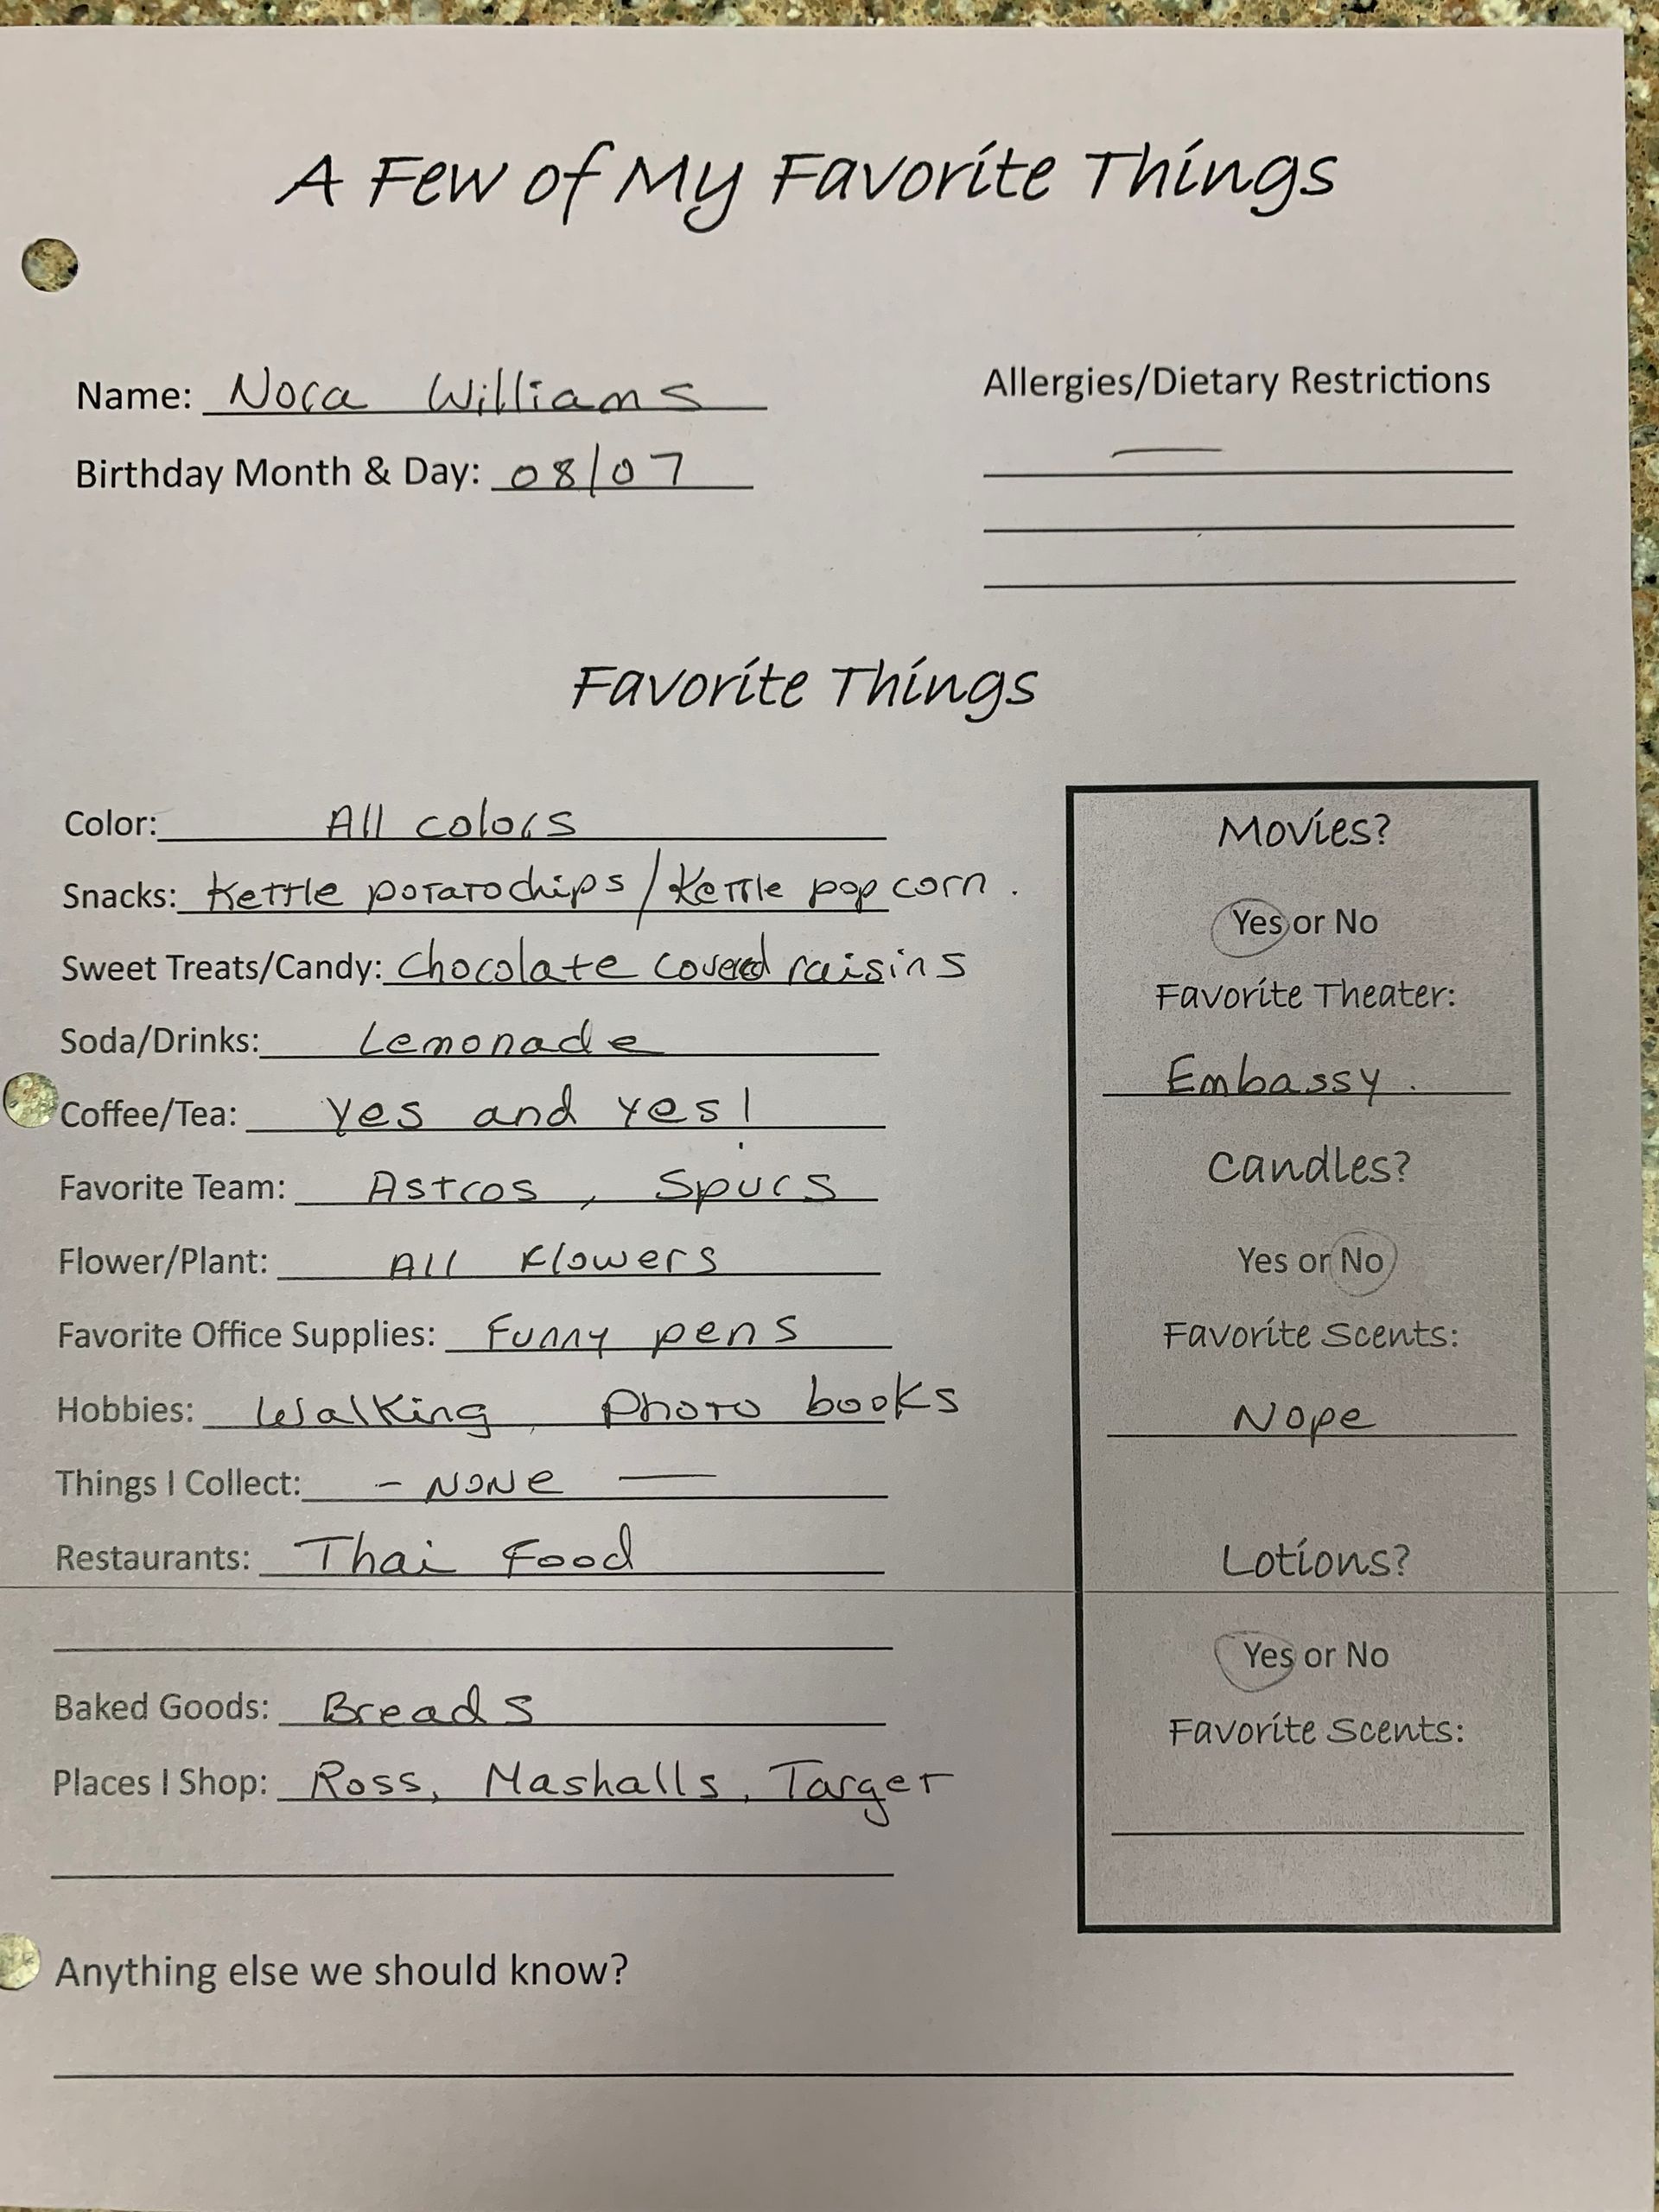 A Few of My Favorite Things
Name: Nora Williams
Birthday Month & Day: 08/07
Allergies/Dietary Restrictions
—
Favorite Things
Color: All colors
Snacks: Kettle potato chips / Kettle pop corn .
Sweet Treats/Candy: chocolate covered raisins
Soda/Drinks: Lemonade
Coffee/Tea: yes and yes!
Favorite Team: Astros , Spurs
Flower/Plant: All Flowers
Favorite Office Supplies: Funny pens
Hobbies: Walking, Photo books
Things I Collect: - NONE —
Restaurants: Thai Food
Baked Goods: Breads
Places I Shop: Ross, Mashalls, Target
Movies?
Yes or No
Favorite Theater:
Embassy.
Candles?
Yes or No
Favorite Scents:
Nope
Lotions?
Yes or No
Favorite Scents:
Anything else we should know?